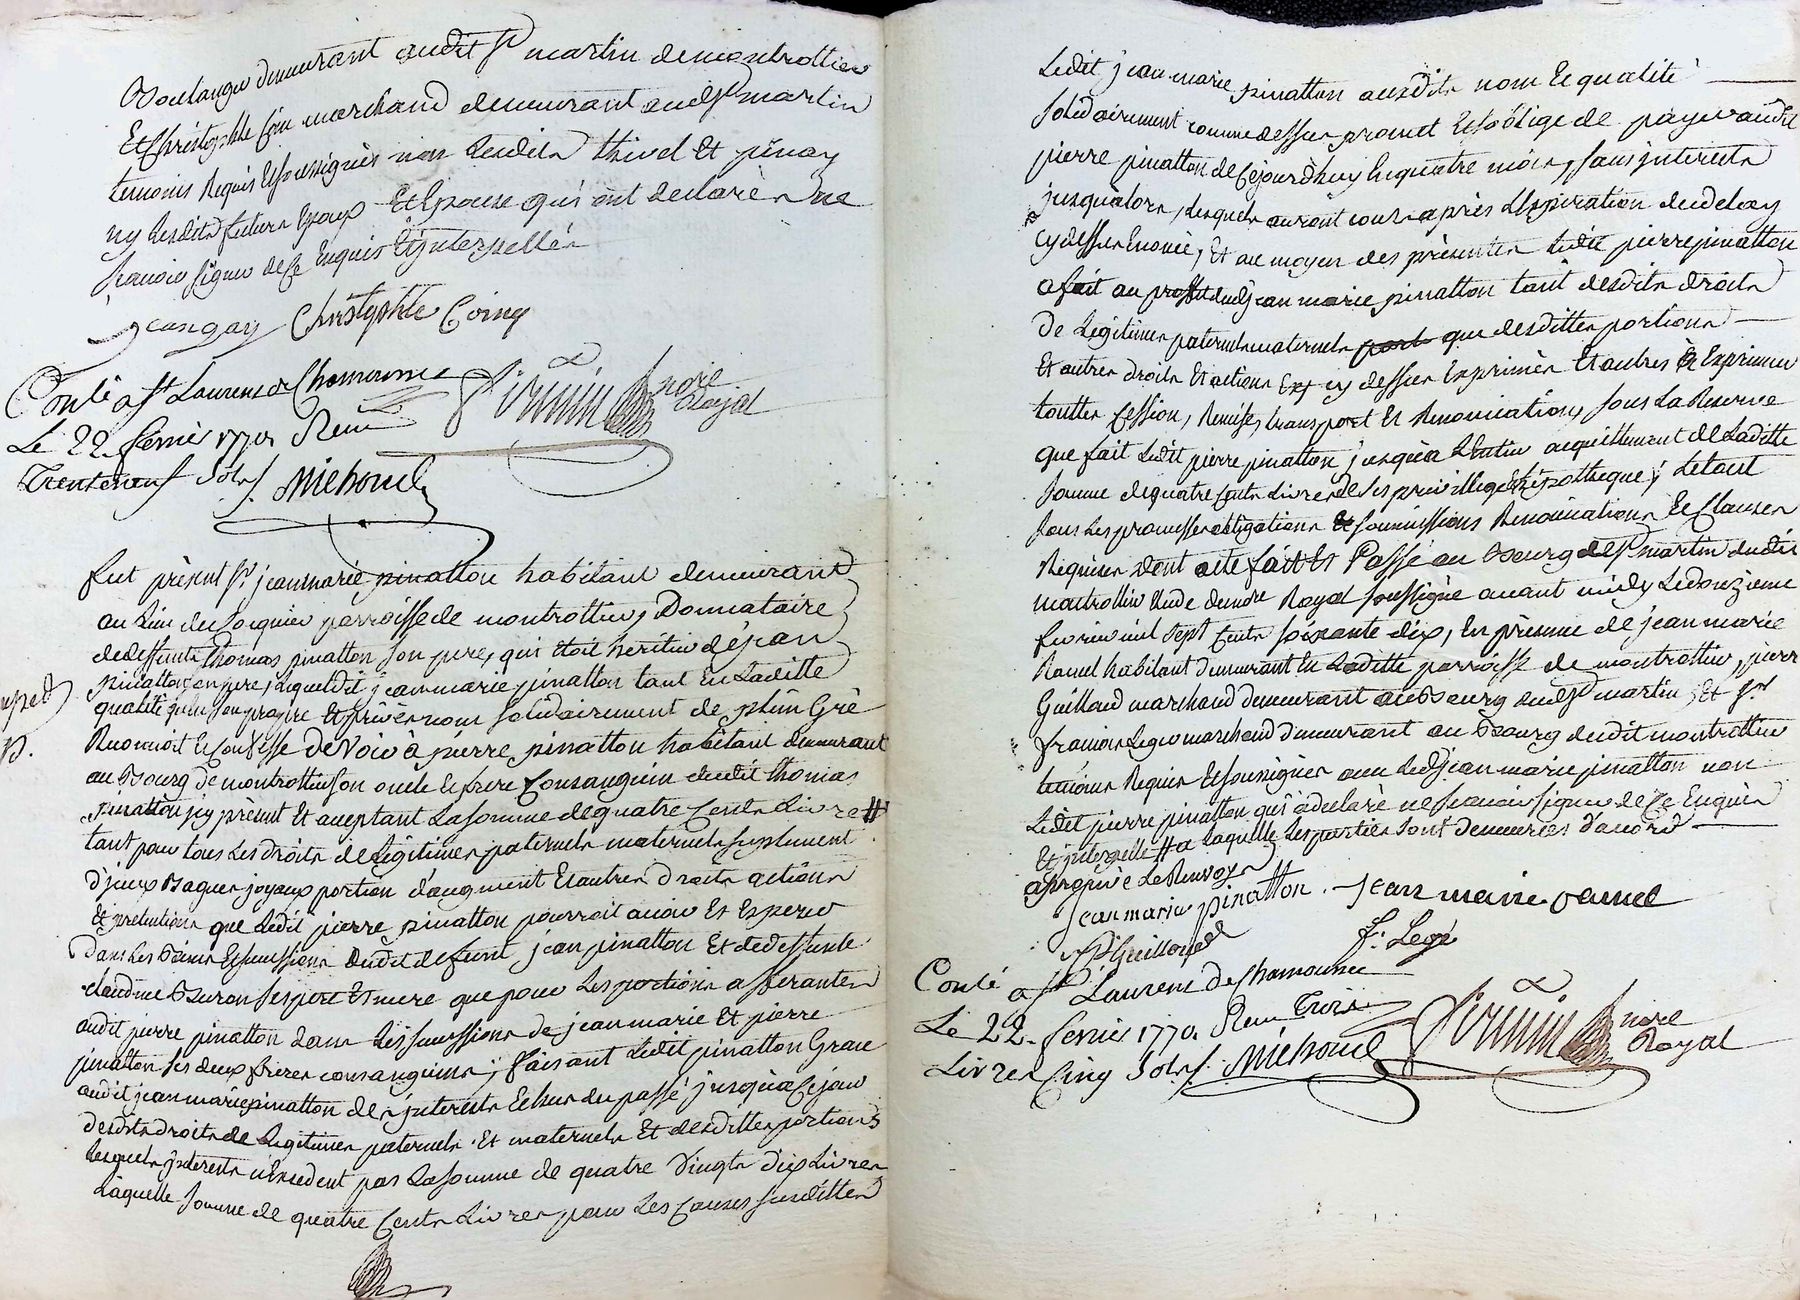 Boulanger demeurant audit St martin de montrottier
Et Christophle Coin marchand demeurant audit St martin
temoins Requis Et soussignès non lesdits thivel Et pinay
ny lesdits futurs Epoux Et Epouse qui ont declarè ne
scavoir signer de ce Enquis Et interpellés
jean gay Christophle Coing
Contlé a St Laurens de Chamousset
Le 22. fevrier 1770. Reçu
Trente neuf Sols Michoud
nore Royal
fut prèsent Sr. jean marie pinatton habitant demeurant
au lieu du parroisse de montrottier, Donnataire
de deffunt thomas pinatton son pere, qui ètoit heritier de jean
pinatton son pere, Lequel dit jean marie pinatton tant En Laditte
qualité qu'en son propre Et privè nom solidairement de plein Grè
Reconnoit Et Confesse deVoir à pierre pinatton habitant demeurant
au Bourg de montrottier son oncle Et frere Consanguin dudit thomas
pinatton icy prèsent Et acceptant La somme de quatre Cents Livres #
tant pour tous Les droits de Légitimes paternels maternels suplement
d'jceux Bagues joyaux portion d'augment Et autres droits actions
Et pretentions que Ledit pierre pinatton pourroit avoir Et Esperer
Dans Les Biens Et successions dudit defunt jean pinatton Et de deffunte
claudine Buron ses pere Et mere que pour Les portions afferantes
audit pierre pinatton dans Les successions de jean marie Et pierre
pinatton ses deux freres consanguins; faisant Ledit pinatton Grace
audit jean marie pinatton des jnterests Echus du passé jusqu'a ce jour
desdits droits de Legitimes paternels Et maternels Et desdittes portions
Lesquels jnterests n'Excedent pas La somme de quatre Vingts dix Livres
Laquelle somme de quatre Cents Livres pour Les Causes susdittes
Ledit jean marie pinatton ausdits nom Et qualité
solidairement comme dessus promet Et s'oblige de payer audit
pierre pinatton de Cejourd'huy En quatre mois, sans jnterests
jusqu'alors, Lesquels auront cours après L'Expiration du delay
cy dessus Enoncé, Et au moyen des prèsentes Ledit pierre pinatton
a fait au profit dudit jean marie pinatton tant desdits droits
de Légitimes paternels maternels que desdittes portions
Et autres droits Et actions cy dessus Exprimès Et autres à Exprimer
touttes Cession, Remise, transport Et Renonciation, sous La Reserve
que fait Ledit pierre pinatton jusqu'a L'Entier acquittement de Laditte
somme de quatre Cents Livres de ses privillege Et hipotheque; Le tout
sous Les promesses obligations Et soumissions Renonciations Et Clauses
Requises dont acte fait Et Passé au Bourg de St martin dudit
montrottier Etude du nore Royal soussigné avant midy Le douzieme
fevrier mil sept Cents soixante dix, En prèsence de jean marie
Ramel habitant demeurant En Laditte parroisse de montrottier, pierre
Guilloud marchand demeurant au Bourg dudit St martin, Et Sr
francois Leger marchand demeurant au Bourg dudit montrottier
temoins Requis Et soussignès avec Ledit jean marie pinatton non
Ledit pierre pinatton qui a declarè ne scavoir signer de Ce Enquis
Et jnterpellé # a Laquelle Les parties sont demeurées d'accord
approuvé Le Renvoy
jean marie pinatton. jean marie ramel
P Guilloud f. Legé
Contlé a St Laurens de Chamousset
Le 22. fevrier 1770. Reçu Trois
Livres Cinq Sols. Michoud
nore Royal